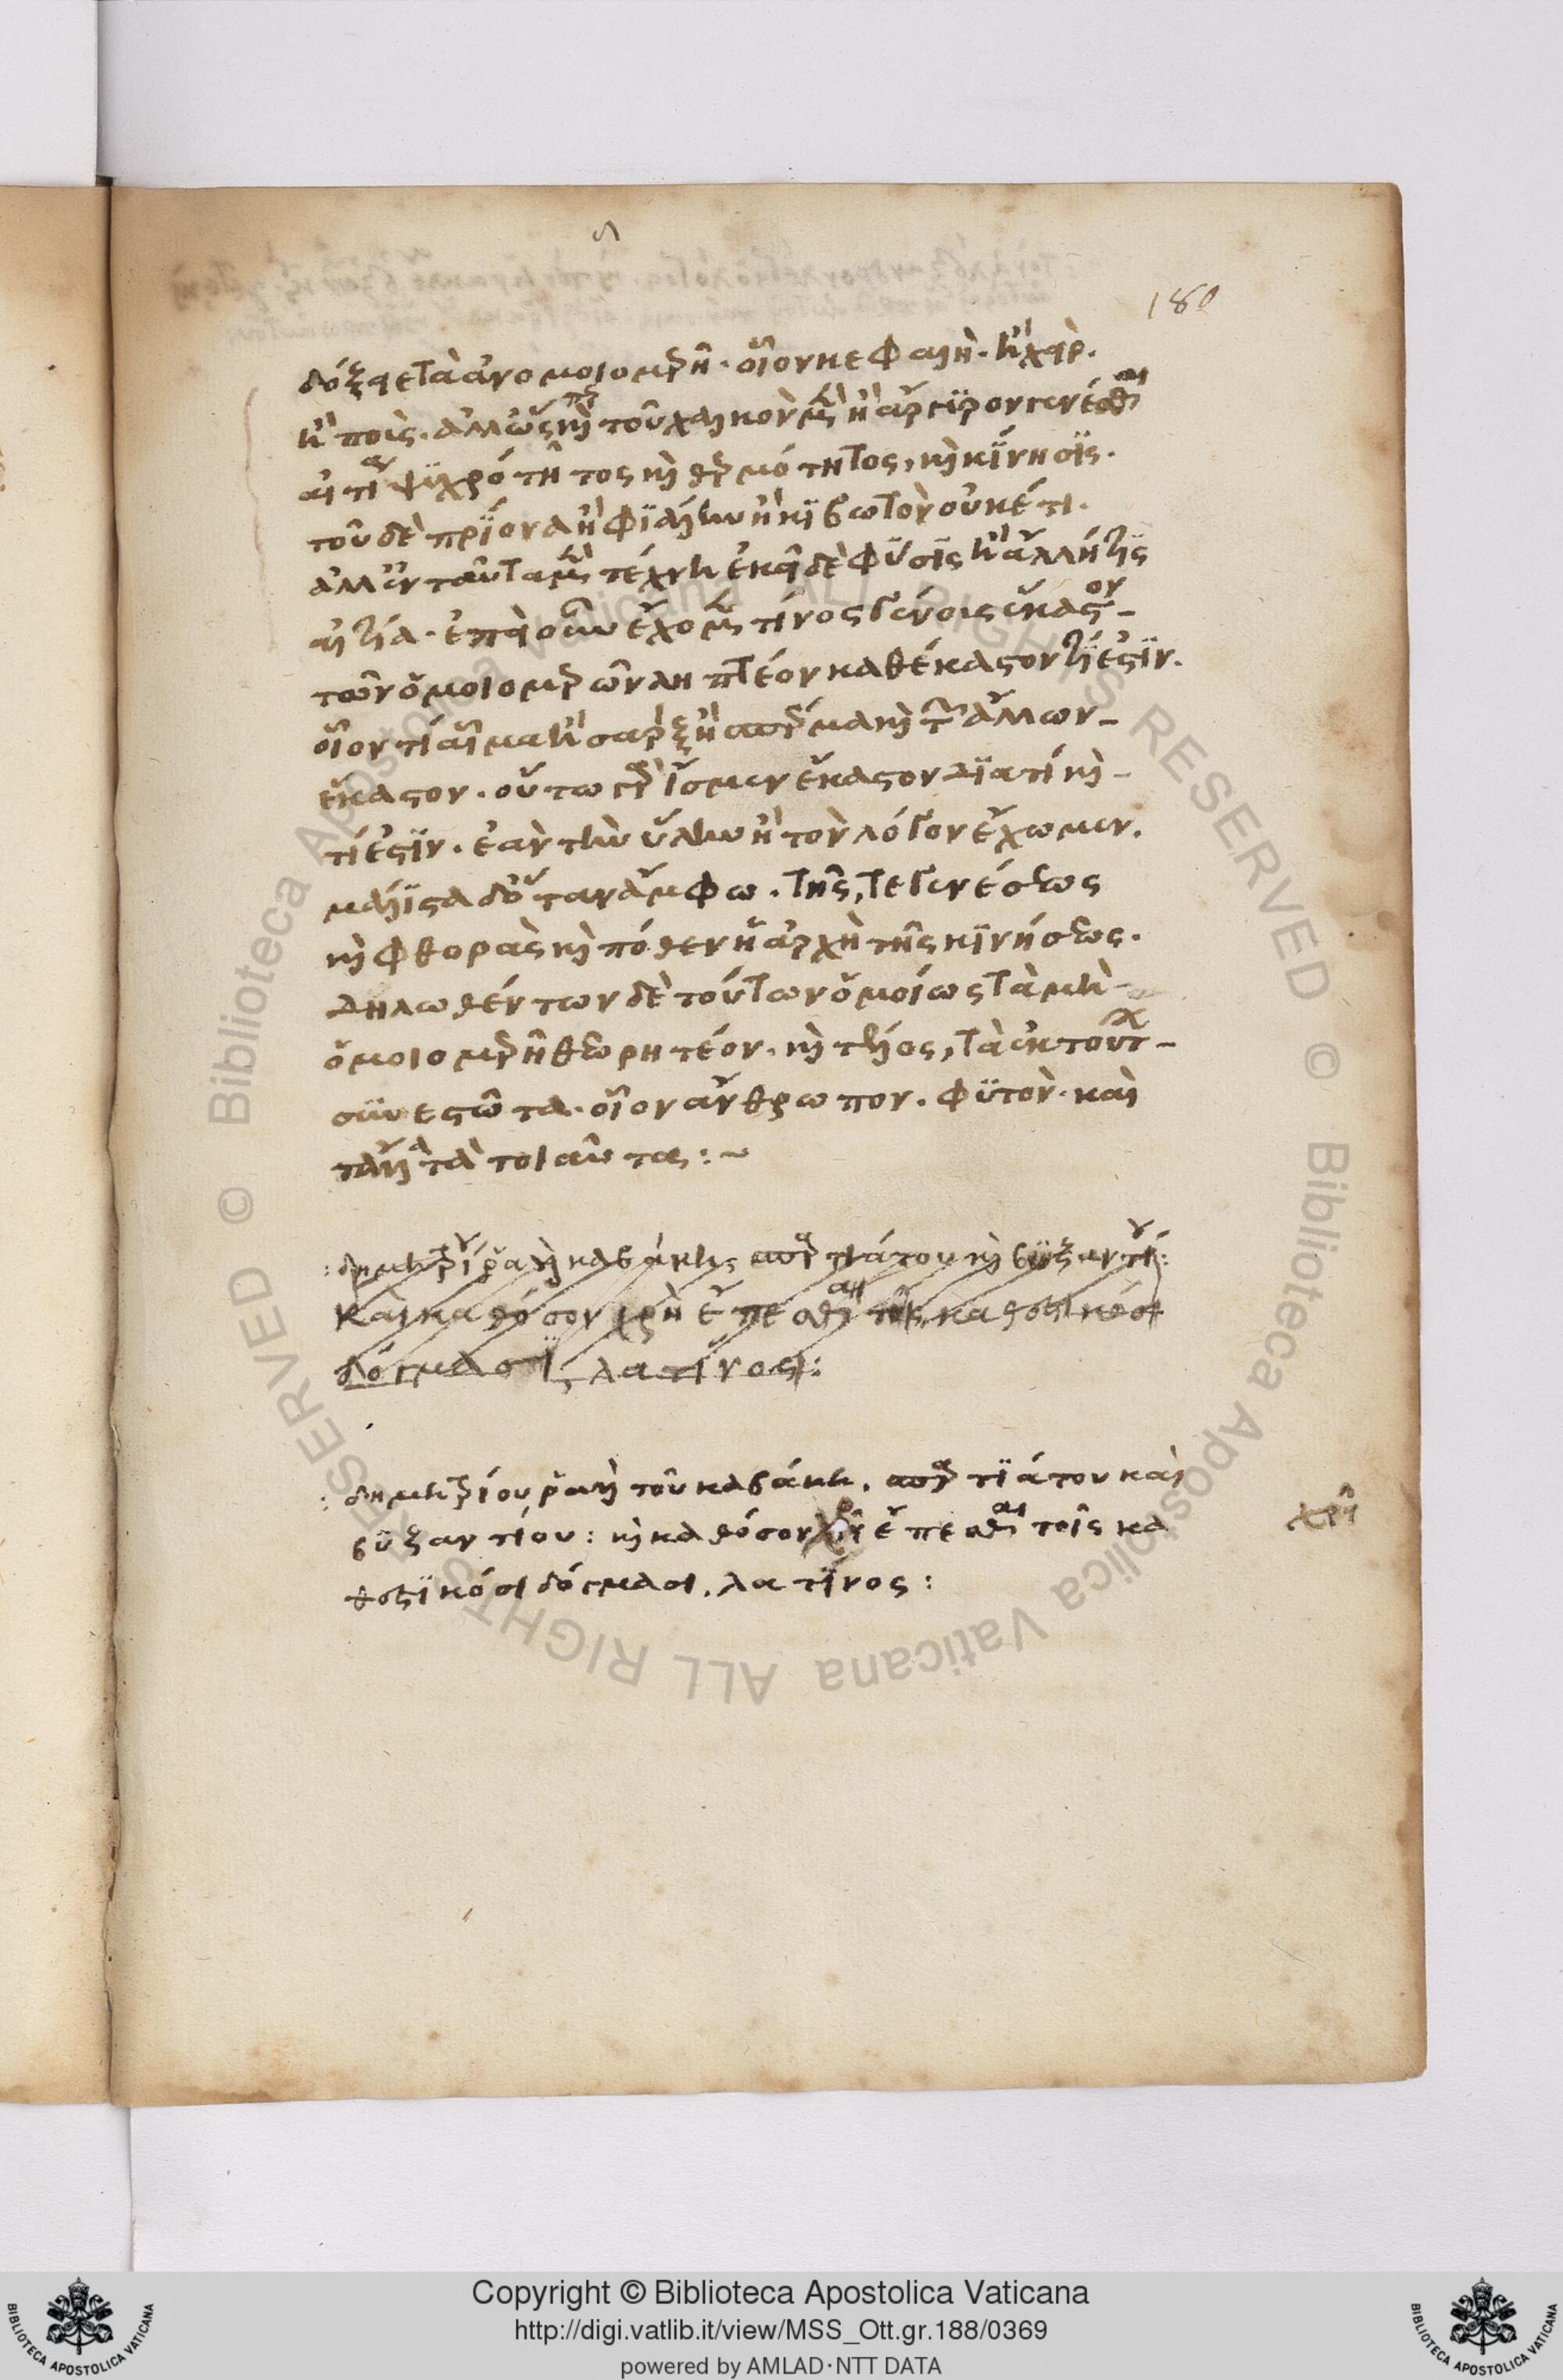 180
δόξειε τὰ ἀνομοιομερῆ. οἷον κεφαλὴ. ἢ χεὶρ.
ἢ ποὺς. ἀλλ' ὥσπερ καὶ τοῦ χαλκὸν μὲν ἢ ἄργυρον γενέσθαι
αἰτίαν ψυχρότητος καὶ θερμότητος, καὶ κίνησις.
τοῦ δὲ πρίονα ἢ φιάλην ἢ κιβωτὸν οὐκέτι.
ἀλλ' ἐνταῦτα μὲν τέχνη ἐκεῖ δὲ φύσις ἢ ἄλλη τις
αἰτία. ἐπεὶ οὖν ἔχομεν τίνος γένους ἕκαστον
τῶν ὁμοιομερῶν ληπτέον καθέκαστον τί ἐστιν.
οἷον τί αἷμα ἢ σαρξ ἢ σπέρμα καὶ τῶν ἄλλων
ἕκαστον. οὕτω γὰρ ἴσμεν ἕκαστον διατί καὶ
τί ἐστιν. ἐὰν τὴν ὕλην ἢ τὸν λόγον ἔχωμεν.
μάλιστα δ' ὅταν ἄμφω. τῆς, τε γενέσεως
καὶ φθορᾶς καὶ πόθεν ἡ ἀρχὴ τῆς κινήσεως.
δηλωθέντων δὲ τούτων ὁμοίως τὰ μὴ
ὁμοιομερῆ θεωρητέον. καὶ τέλος, τὰ ἐκ τούτων
συνεστῶτα. οἷον ἄνθρωπον. φυτὸν. καὶ
τἄλλα τὰ τοιαῦτα:~
: δημητρίου ῥαὴλ καβάκης σπαρτιάτου καὶ βυζαντίου:
καὶ καθόσον χρὴ ἕπεσθαι τοῖς καθολικόσι
δόγμασι, λατῖνος:
: δημητρίου ῥαὴλ τοῦ καβάκη. σπαρτιάτου καὶ
βυζαντίου: καὶ καθόσον χρὴ ἕπεσθαι τοῖς κα
θολικόσι δόγμασι. λατῖνος:
χρὴ
© Biblioteca Apostolica Vaticana ALL RIGHTS RESERVED © Biblioteca Apostolica Vaticana ALL RIGHTS RESERVED
Copyright © Biblioteca Apostolica Vaticana
http://digi.vatlib.it/view/MSS_Ott.gr.188/0369
powered by AMLAD·NTT DATA
BIBLIOTECA APOSTOLICA VATICANA
BIBLIOTECA APOSTOLICA VATICANA